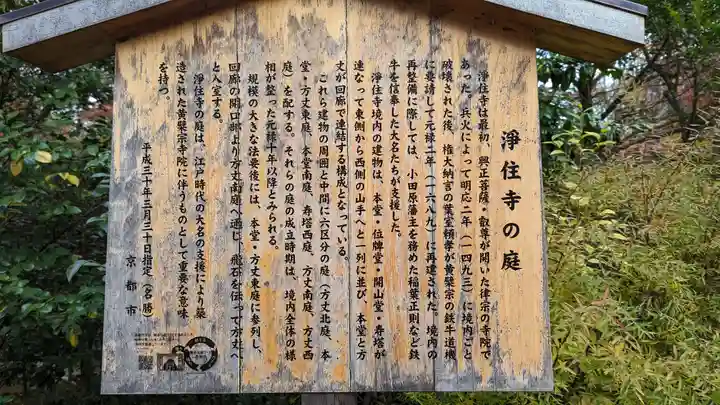 淨住寺の庭
淨住寺は最初、興正菩薩・叡尊が開いた律宗の寺院で
あった。兵火によって明応二年（一四九三）に境内ごと
破壊された後、権大納言の葉室頼孝が黄檗宗の鉄牛道機
に要請して元禄二年（一六八九）に再建された。境内の
再整備に際しては、小田原藩主を務めた稲葉正則など鉄
牛を信奉した大名たちが支援した。
淨住寺境内の建物は、本堂・位牌堂・開山堂・寿塔が
連なって東側から西側の山手へと一列に並び、本堂と方
丈が回廊で連結する構成となっている。
これら建物の周囲と中間に六区分の庭（方丈北庭、本
堂・方丈東庭、本堂南庭、寿塔西庭、方丈南庭、方丈西
庭）を配する。それらの庭の成立時期は、境内全体の様
相が整った元禄十年以降とみられる。
規模の大きな法要後には、本堂・方丈東庭に参列し、
回廊の開口部より方丈南庭へ通じ、飛石を伝って方丈へ
と入室する。
淨住寺の庭は、江戸時代の大名の支援により築
造された黄檗宗寺院に伴うものとして重要な意味
を持つ。
平成三十年三月三十日指定（名勝）
京都市